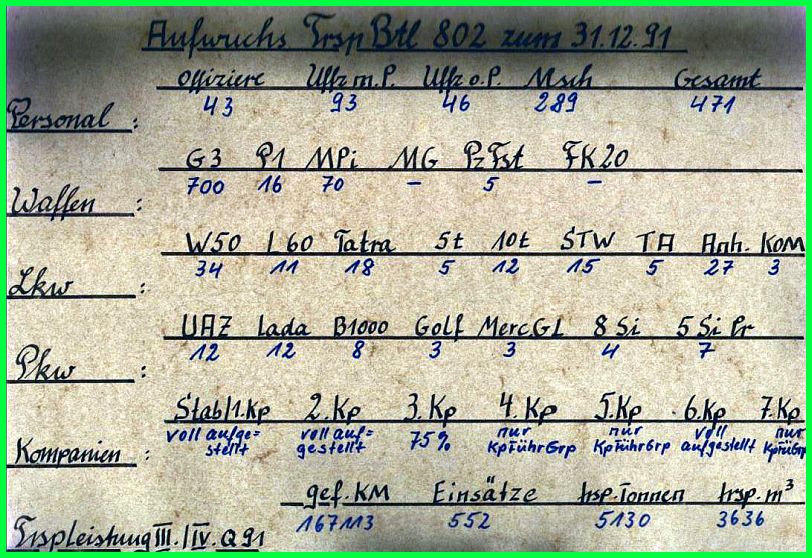 Aufwuchs TrspBtl 802 zum 31.12.91
Offiziere Uffz m.P. Uffz o.P. Msch Gesamt
Personal: 43 93 46 289 471
G3 P1 MPi MG PzFst FK20
700 16 70 – 5 –
Waffen:
W50 L60 Tatra 5t 10t STW TA Anh. KOM
34 11 18 5 12 15 5 27 3
Lkw:
UAZ Lada B1000 Golf Merc.GL 8 Si 5 Si Pr
12 12 8 3 3 4 7
Pkw:
Stab/1.Kp 2.Kp 3.Kp 4.Kp 5.Kp 6.Kp 7.Kp
voll aufge- voll auf= 75% nur nur voll nur
stellt gestellt KpFührGrp KpFührGrp aufgestellt KpFüGrp
Kompanien:
gef.KM Einsätze trsp.Tonnen trsp.m³
167113 552 5130 3636
Trspleistung III./IV.Q91